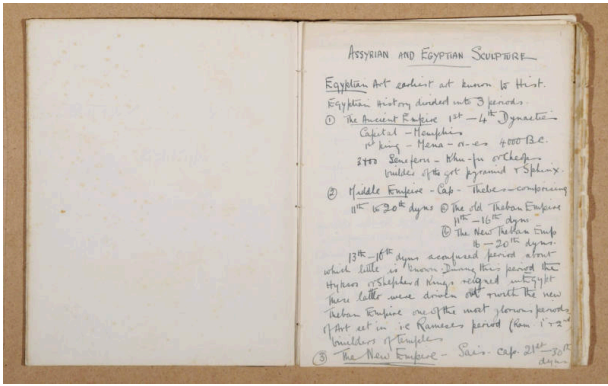 ASSYRIAN AND EGYPTIAN SCULPTURE
Egyptian Art earliest art known to Hist.
Egyptian History divided into 3 periods.
① The Ancient Empire 1st — 4th Dynasties
Capital — Memphis
1st King — Mena 4000 B.C.
Seneferu — Khu-fu or Cheops
builder of the grt pyramid & Sphinx.
② Middle Empire - Cap - Thebes - comprising
11th to 20th dyns ⓐ The old Theban Empire
11th — 16th dyns
ⓑ The New Theban Emp
16 — 20th dyns.
13th — 16th dyns a confused period about
which little is known During this period the
Hyksos or Shepherd Kings reigned in Egypt
these latter were driven out & with the new
Theban Empire one of the most glorious periods
of Art set in i.e Rameses period (Ram 1st & 2nd
builders of temples
③ The New Empire — Sais - cap. 21st — 30th
dyns